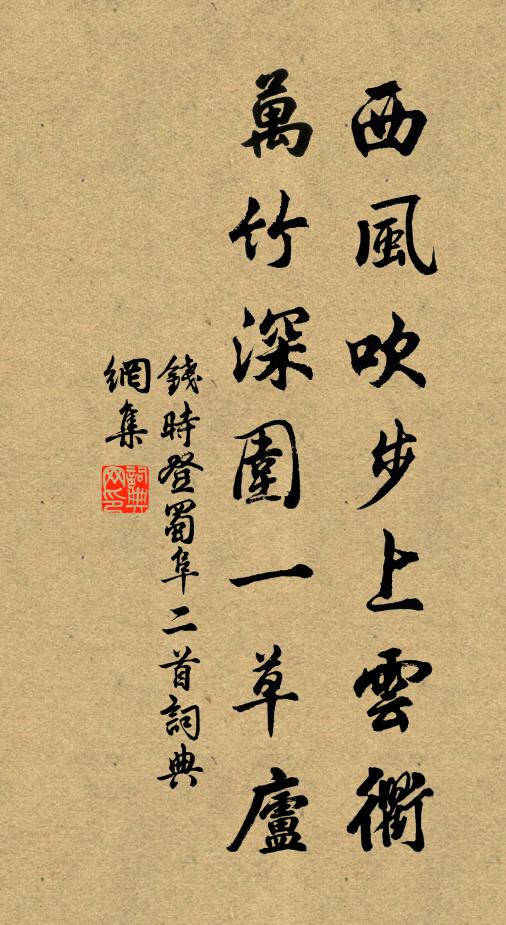 西風吹步上雲衢
萬竹深圍一草廬
錢時登蜀阜二首詞典
網集
詞典網印